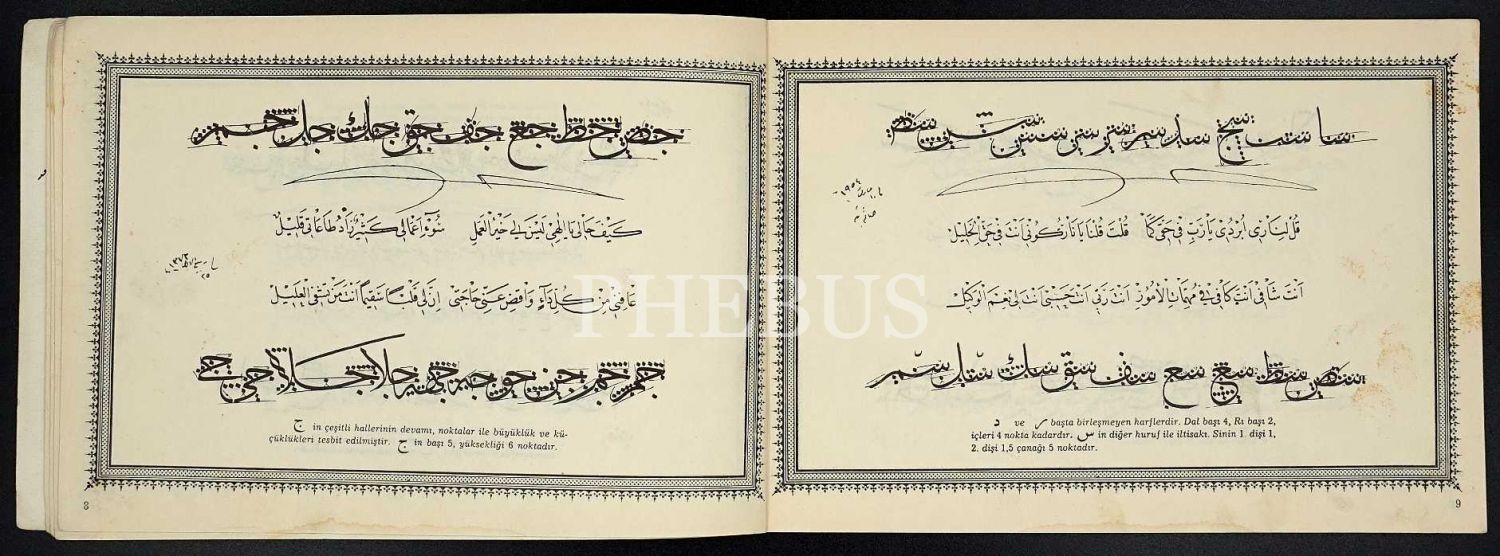 جص جط جع جف جق جك جل جم
كَيْفَ حَالِي يَا اِلٰهِي لَيْسَ لِي خَيْرُ الْعَمَلِ سُوءُ اَعْمَالِي كَثِيرٌ زَادُ طَاعَاتِي قَلِيلْ
عَافِنِي مِنْ كُلِّ دَاءٍ وَاقْضِ عَنِّي حَاجَتِي اِنَّ لِي قَلْبًا سَقِيمًا اَنْتَ مَنْ يَشْفِي الْعَلِيلْ
جم جن جو جه جلا جى
ج in çeşitli hallerinin devamı, noktalar ile büyüklük ve kü-
çüklükleri tesbit edilmiştir. ج in başı 5, yüksekliği 6 noktadır.
8
سا ست سج سد سر سس سص
قُلْ لِنَارِي اُبْرُدِي يَا رَبِّ فِي حَقِّي كَمَا قُلْتَ قُلْنَا يَا نَارُ كُونِي اَنْتَ فِي حَقِّ الْخَلِيلْ
اَنْتَ شَافِي اَنْتَ كَافِي فِي مُهِمَّاتِ الْاُمُورْ اَنْتَ رَبِّي اَنْتَ حَسْبِي اَنْتَ لِي نِعْمَ الْوَكِيلْ
سص سط سع سف سق سك سل سم
د ve ر başta birleşmeyen harflerdir. Dal başı 4, Rı başı 2,
içleri 4 nokta kadardır. س in diğer huruf ile iltisakı. Sinin 1. dişi 1,
2. dişi 1,5 çanağı 5 noktadır.
9
PHEBUS